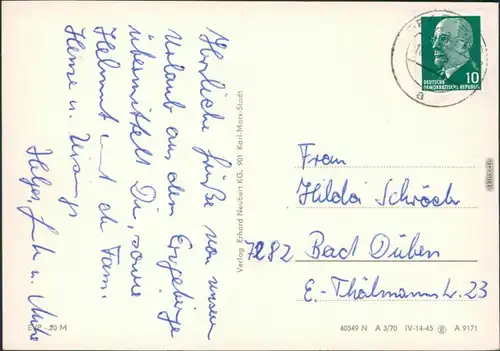 Herzliche Grüße von unserem
Urlaub aus dem Erzgebirge
übermittelt Dir, sowie
Helmut und de Fam.
Heinze u.
Helga, u.
Verlag Erhard Neubert KG, 901 Karl-Marx-Stadt
10
DEUTSCHE
DEMOKRATISCHE REPUBLIK
a
Frau
Hilda Schröch
7282 Bad Düben
E.-Thälmannstr. 23
EVP -.20 M
40549 N A 3/70 IV-14-45 A 9171